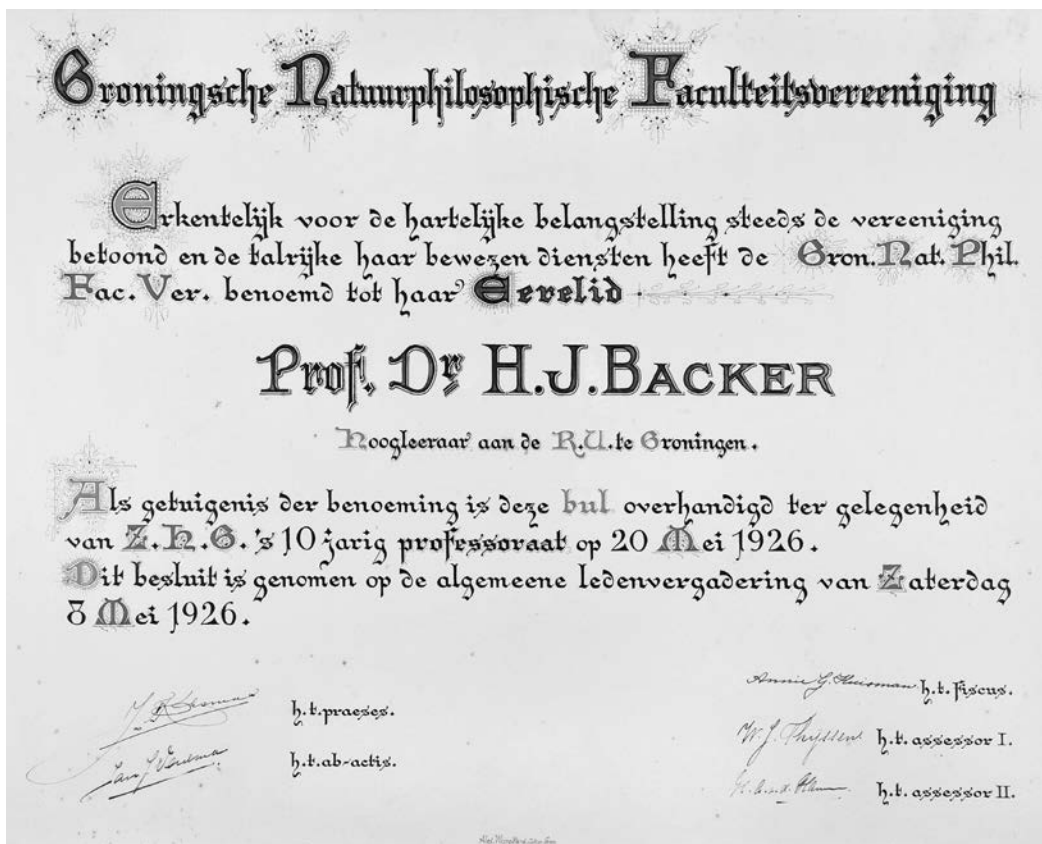 Groningsche Natuurphilosophische Faculteitsvereeniging
Erkentelijk voor de hartelijke belangstelling steeds de vereeniging
betoond en de talrijke haar bewezen diensten heeft de Gron. Nat. Phil.
Fac. Ver. benoemd tot haar Eerelid
Prof. Dr H.J. BACKER
Hoogleeraar aan de R.U. te Groningen.
Als getuigenis der benoeming is deze bul overhandigd ter gelegenheid
van Z.H.G.'s 10 jarig professoraat op 20 Mei 1926.
Dit besluit is genomen op de algemeene ledenvergadering van Zaterdag
8 Mei 1926.
h.t. praeses.
h.t. ab-actis.
Annie G. Huisman h.t. fiscus.
W. J. Thijssen h.t. assessor I.
h.t. assessor II.